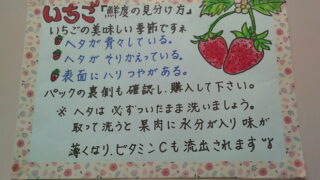 いちご『鮮度の見分け方』
いちごの美味しい季節ですネ
ヘタが青々している。
ヘタがそりかえっている。
表面にハリつやがある。
パックの裏側も確認し、購入して下さい。
※ヘタは必ずついたまま洗いましょう。
取って洗うと果肉に水分が入り味が
薄くなり、ビタミンCも流出されます